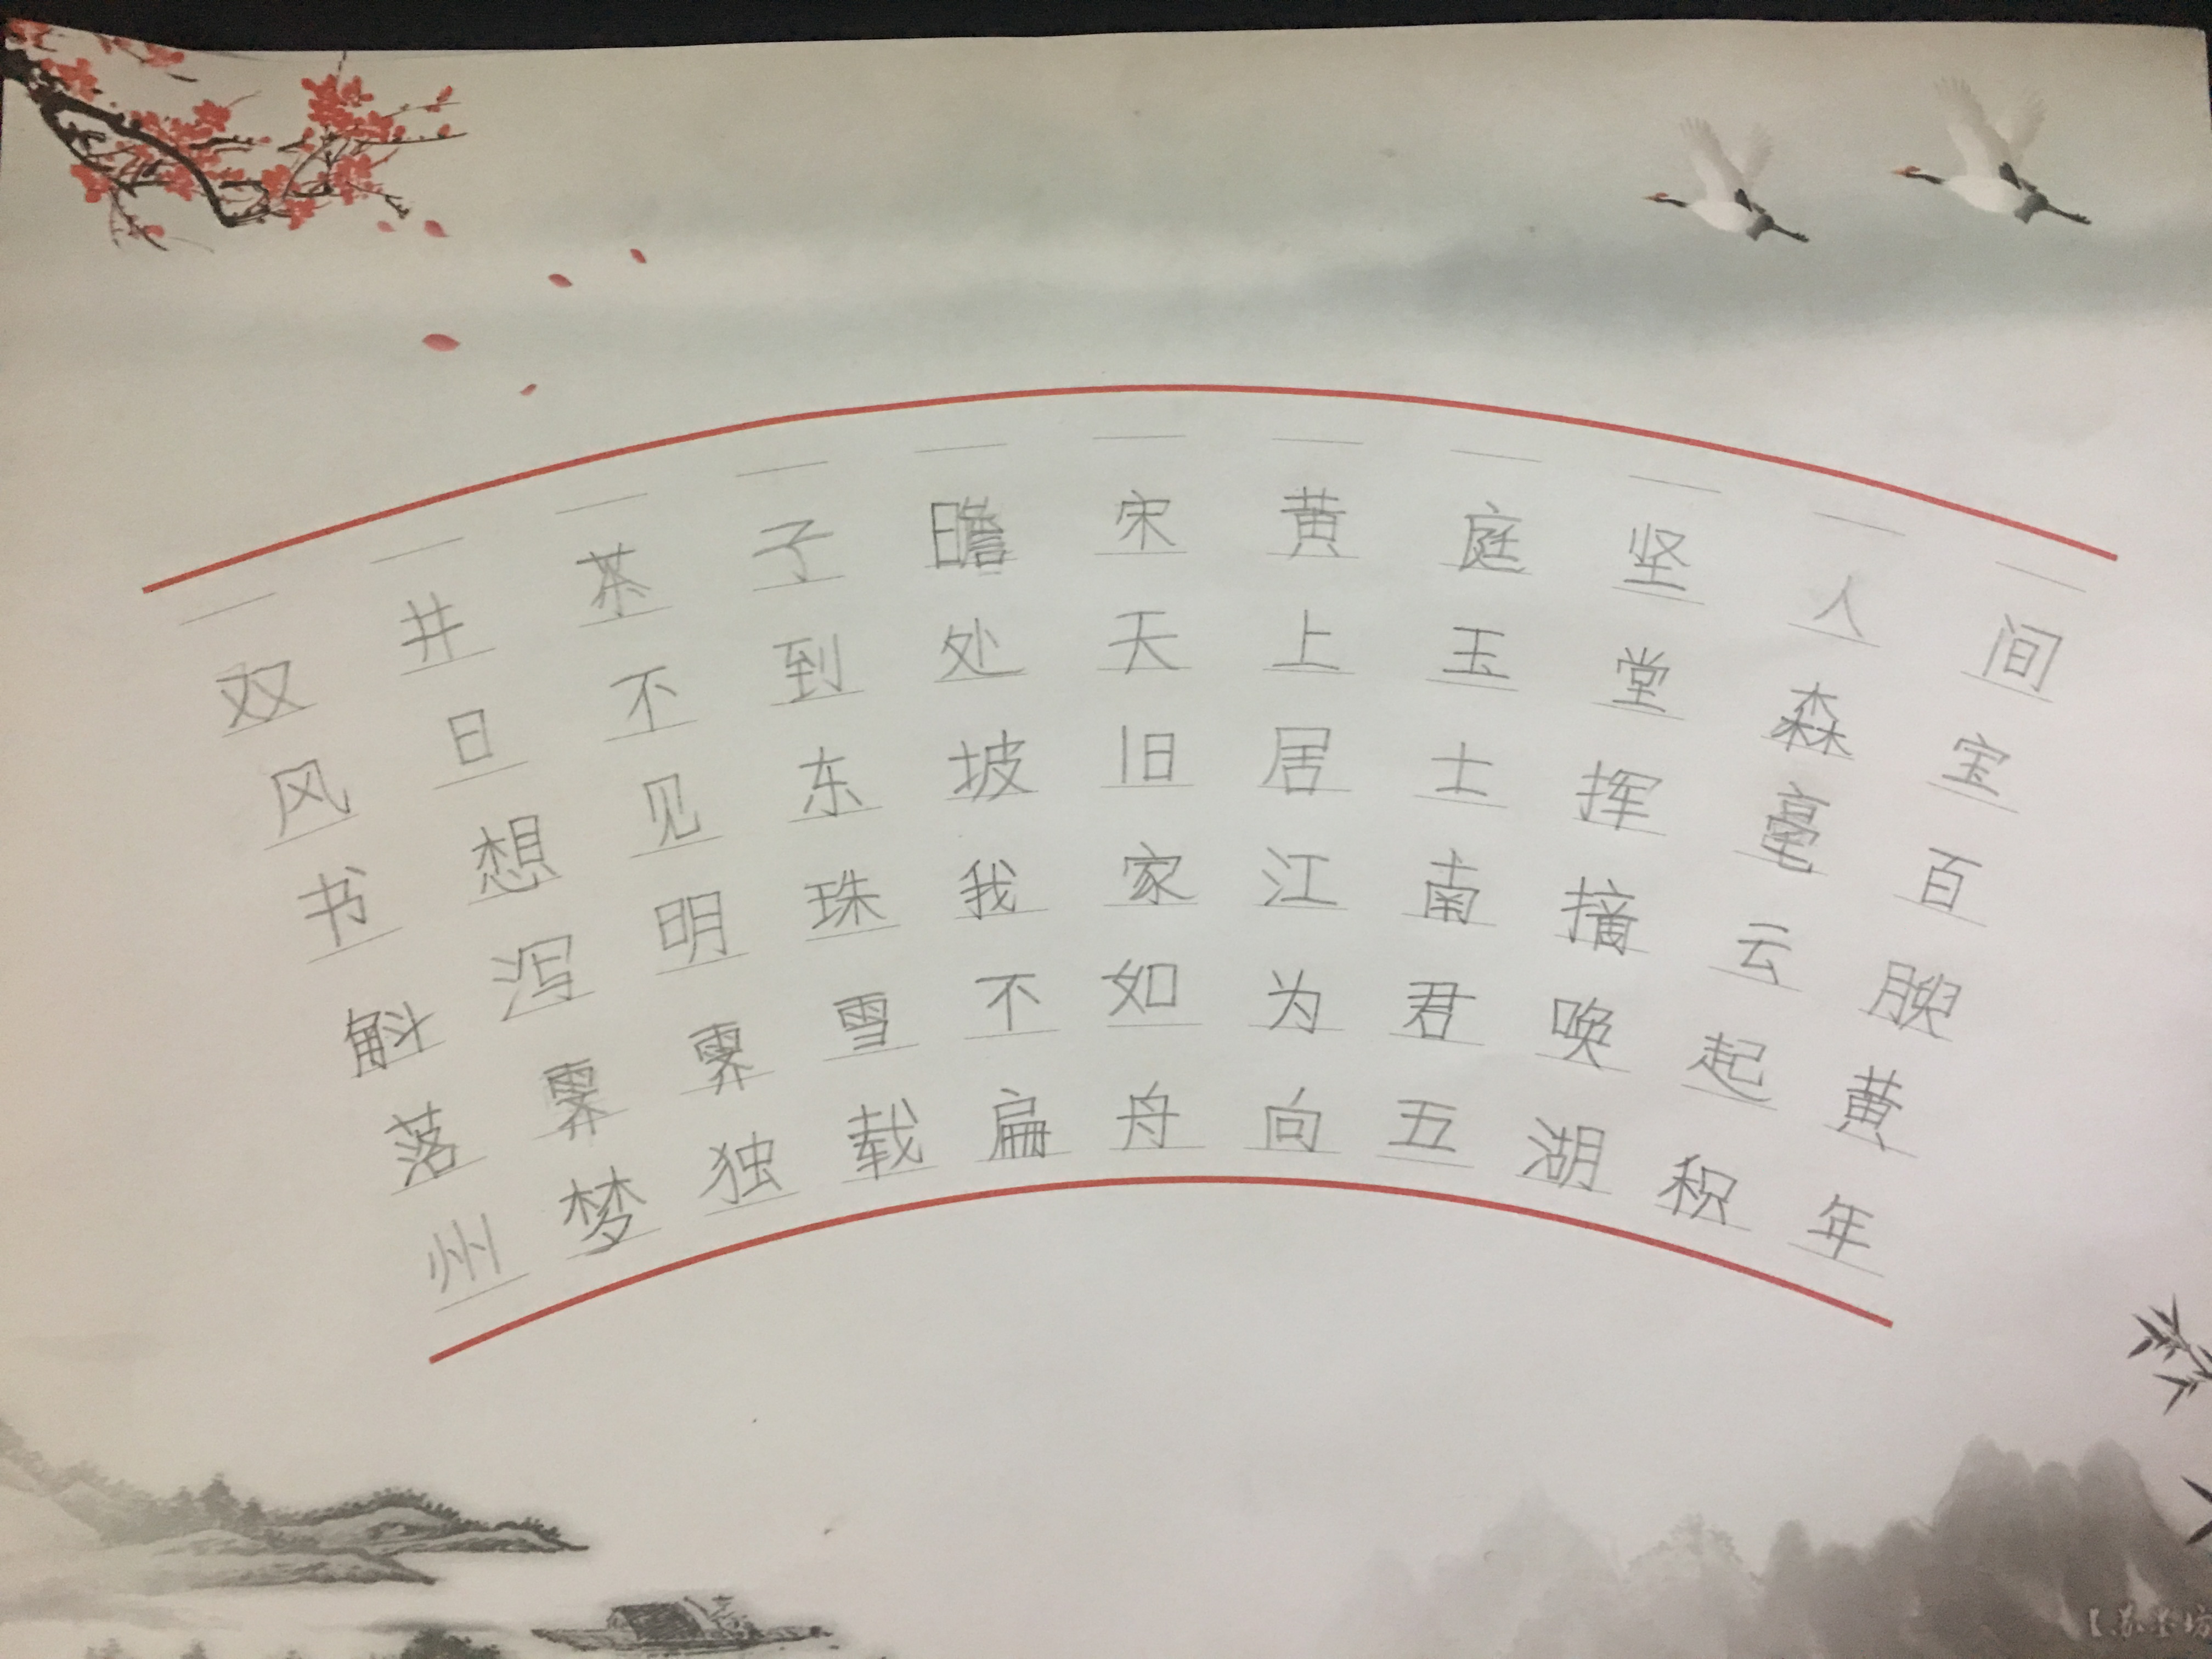 双井茶子瞻宋黄庭坚人间
风日不到处天上玉堂森宝
书想见东坡旧居士挥毫百
斛泻明珠我家江南摘云腴
落霁霁雪不如为君唤起黄
州梦独载扁舟向五湖积年